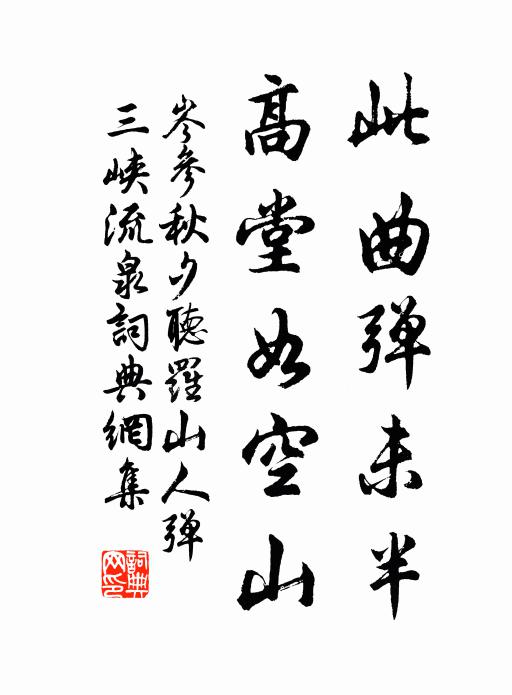 此曲弹未半
高堂如空山
岑參秋夕聽羅山人弹
三峽流泉詞典網集
詞典网印